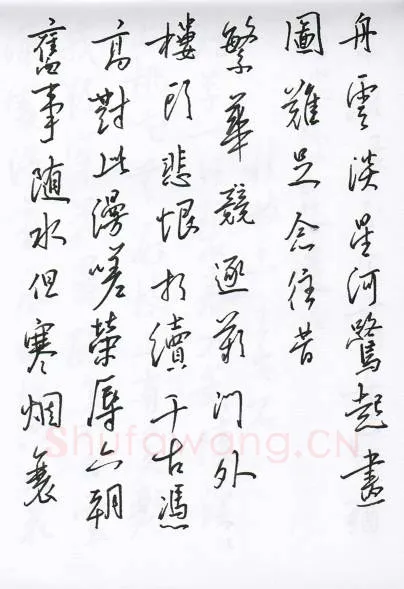 舟雲淡星河鷺起畫
圖難足念往昔
繁華競逐歎門外
樓頭悲恨相續千古憑
高對此漫嗟榮辱六朝
舊事随水但寒烟衰
Shufawang.CN